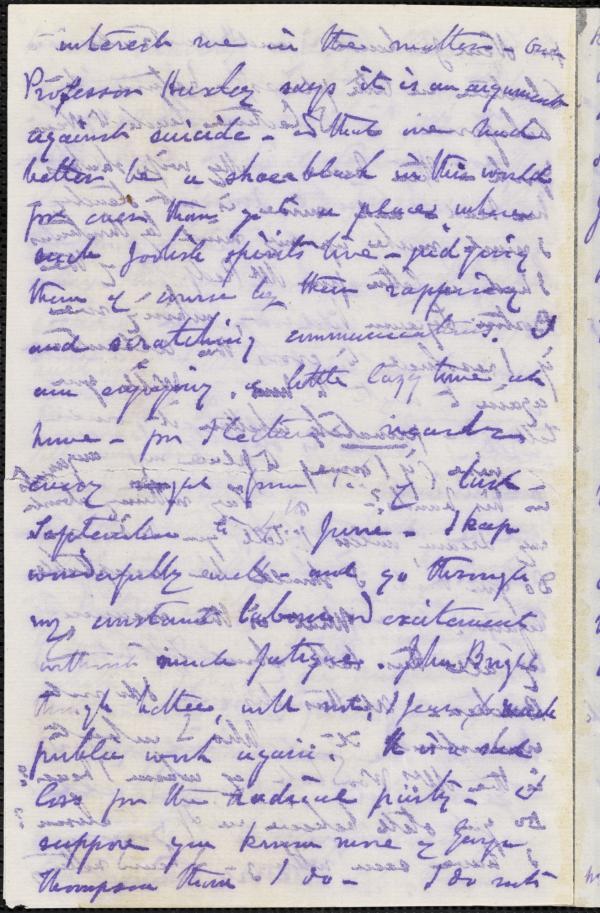 interest me in the matter - Our
Professor Huxley says it is an argument
against suicide - & that one had
better be a shoe-black in this world
for ever than go to a place where
such foolish spirits live - judging
them of course by their rappings
and scratching communicat^s. I
am enjoying a little lazy time at
home - for I lecture nearly
every night from
September to June - I keep
wonderfully well - and go through
my constant labour & excitement
without much fatigue. John Bright
though better, will not, I fear, do much
public work again. It is a sad
loss for the radical party - I
suppose you know more of George
Thompson than I do - I do not